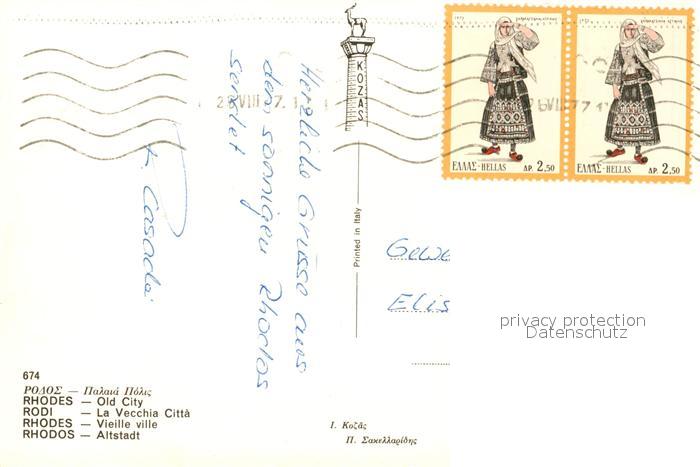 KOZAS
ΕΛΛΑΣ-HELLAS ΔΡ. 2,50
ΕΛΛΑΣ-HELLAS ΔΡ. 2,50
Herzliche Grüsse aus
dem sonnigen Rhodos
sendet
Printed in Italy
privacy protection
Datenschutz
674
ΡΟΔΟΣ — Παλαιά Πόλις
RHODES — Old City
RODI — La Vecchia Città
RHODES — Vieille ville
RHODOS — Altstadt
Ι. Κοζᾶς
Π. Σακελλαρίδης